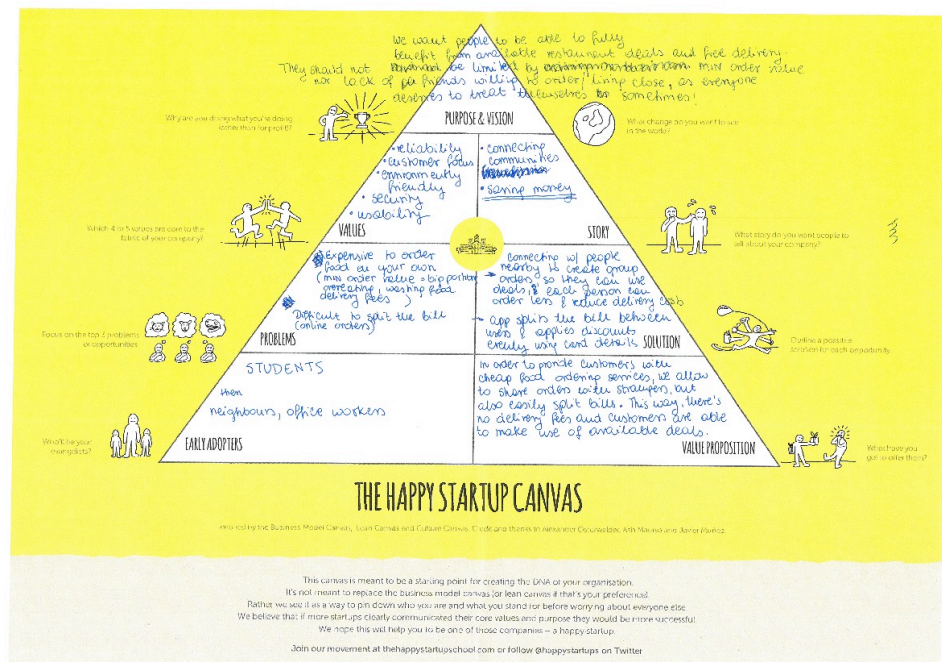 We want people to be able to fully
benefit from available restaurant deals and free delivery.
They should not be limited by min order value
nor lack of friends willing to order/living close, as everyone
deserves to treat themselves sometimes!
Why are you doing what you're doing
(other than for profit)?
PURPOSE & VISION
What change do you want to see
in the world?
• reliability
• customer focus
• environmently
friendly
• security
• usability
VALUES
• connecting
communities
• saving money
STORY
Which 4 or 5 values are core to the
fabric of your company?
What story do you want people to
tell about your company?
Expensive to order
food on your own
(min order value = big portions
overeating, wasting food
delivery fees)
Difficult to split the bill
(online orders)
PROBLEMS
→ connecting w/ people
nearby to create group
orders so they can use
deals, & each person can
order less & reduce delivery costs
→ app splits the bill between
users & applies discounts
evenly using card details
SOLUTION
Focus on the top 3 problems
or opportunities
Outline a possible
solution for each opportunity
STUDENTS
then
neighbours, office workers
EARLY ADOPTERS
In order to provide customers with
cheap food ordering services, we allow
to share orders with strangers, but
also easily split bills. This way, there's
no delivery fees and customers are able
to make use of available deals.
VALUE PROPOSITION
Who'll be your
evangelists?
What have you
got to offer them?
THE HAPPY STARTUP CANVAS
Inspired by the Business Model Canvas, Lean Canvas and Culture Canvas. Credit and thanks to Alexander Osterwalder, Ash Maurya and Javier Muñoz
This canvas is meant to be a starting point for creating the DNA of your organisation.
It's not meant to replace the business model canvas (or lean canvas if that's your preference).
Rather we see it as a way to pin down who you are and what you stand for before worrying about everyone else
We believe that if more startups clearly communicated their core values and purpose they would be more successful.
We hope this will help you to be one of those companies – a happy startup.
Join our movement at thehappystartupschool.com or follow @happystartups on Twitter